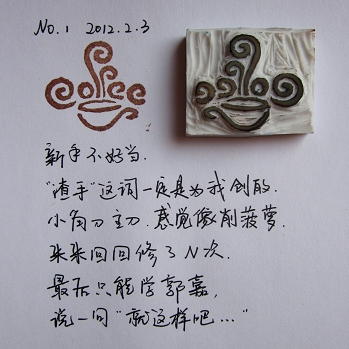 No.1 2012.2.3
coffee
新手不好当.
"渣手"这词一定是为我创的.
小角刀主刀.感觉像削菠萝.
来来回回修了N次.
最后只能学郭嘉,
说一句"就这样吧..."